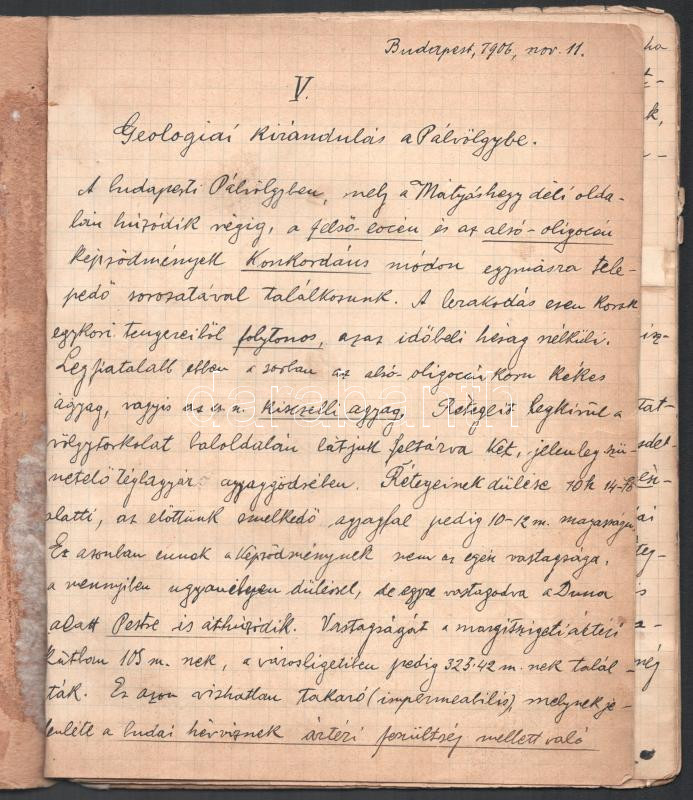 Budapest, 1906, nov. 11.
V.
Geologiai kirándulás a Pálvölgybe.
A budapesti Pálvölgyben, mely a Mátyáshegy déli olda-
lán húzódik végig, a felső-eocén és az alsó-oligocén
képződmények konkordáns módon egymásra tele-
pedő sorozatával találkozunk. A lerakodás ezen korok
egykori tengereiből folytonos, azaz időbeli hézag nélküli.
Legfiatalabb ebben a sorban az alsó-oligocén koru kékes
agyag, vagyis az u. n. kisczelli agyag. Rétegeit legkívül a
völgytorkolat baloldalán látjuk feltárva két, jelenleg szü-
netelő téglagyár agyaggödrében. Rétegeinek dülése 10h 14-18
alatti, az előttünk emelkedő agyagfal pedig 10-12 m. magasságu.
Ez azonban ennek a képződménynek nem az egész vastagsága,
a mennyiben ugyanilyen düléssel, de egyre vastagodva a Duna
alatt Pestre is áthúzódik. Vastagságát a margitszigeti ártézi
kútban 105 m. nek, a városligetiben pedig 323·42 m. nek talál-
ták. Ez azon vízhatlan takaró (impermeabilis) melynek je-
lenléte a budai hévviznek ártézi feszültség mellett való
darabanth